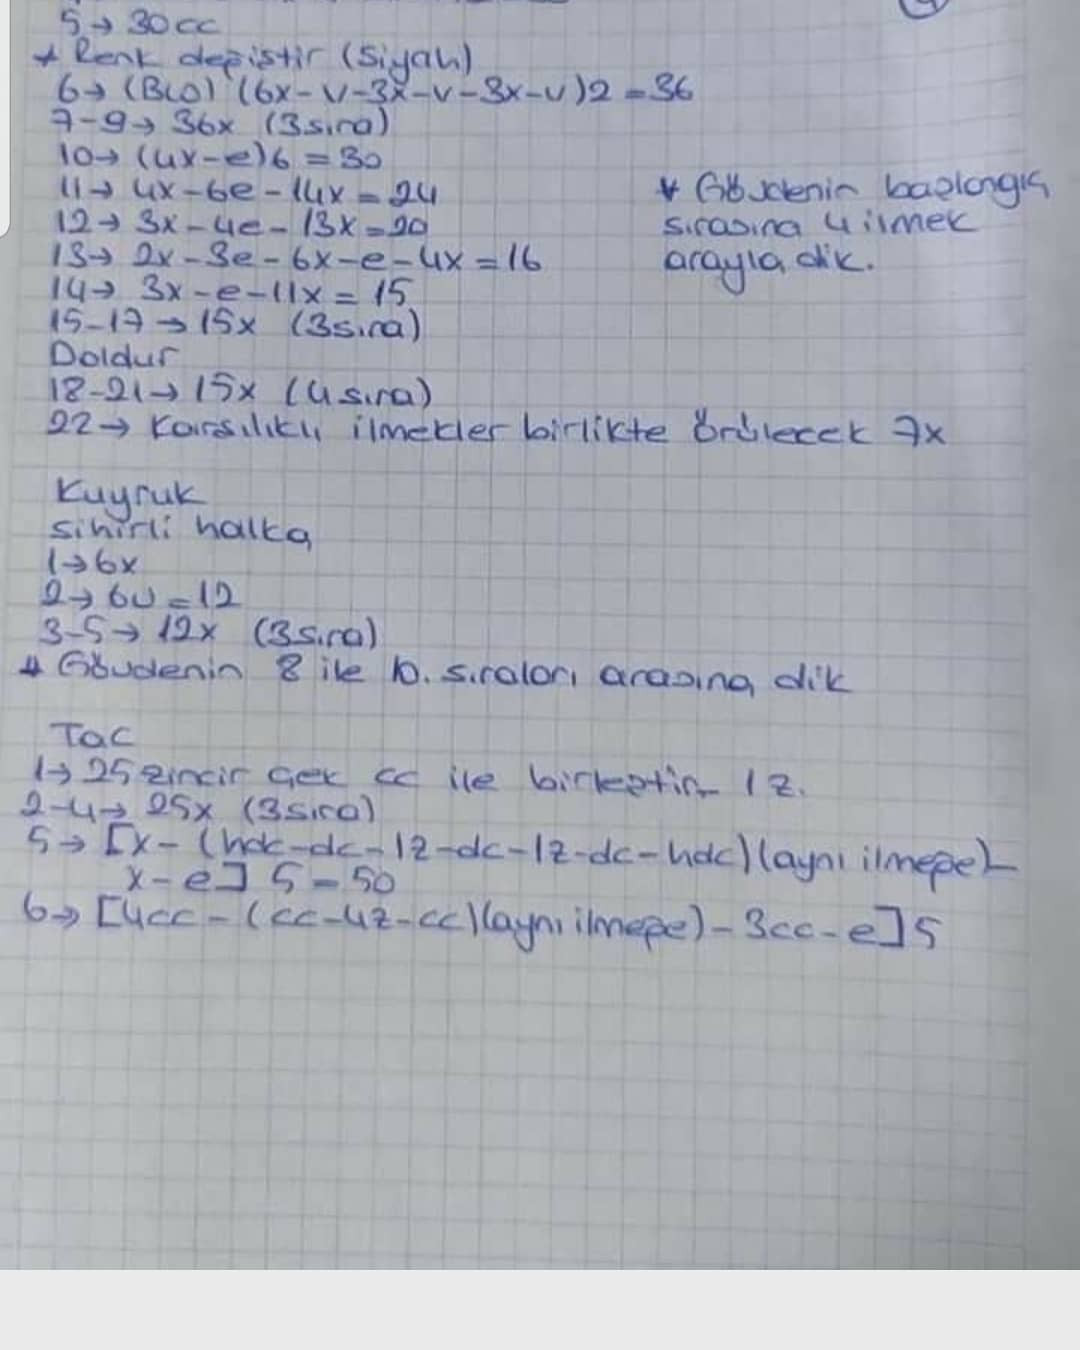 5→ 30cc
* Renk değiştir (Siyah)
6→ (BLO) (6x-v-3x-v-3x-v)2=36
7-9→ 36x (3sıra)
10→ (4x-e)6=30
11→ 4x-6e-14x=24
12→ 3x-4e-13x=20
13→ 2x-3e-6x-e-4x=16
14→ 3x-e-11x=15
15-17→15x (3sıra)
Doldur
18-21→15x (4sıra)
22→ Karşılıklı ilmekler birlikte örülecek 7x
* Gövdenin başlangıç
sırasına 4 ilmek
arayla dik.
Kuyruk
sihirli halka
1→6x
2→6v=12
3-5→12x (3sıra)
* Gövdenin 8 ile 10. sıraları arasına dik
Tac
1→25 zincir çek cc ile birleştir 1z.
2-4→ 25x (3sıra)
5→ [x-(hdc-dc-1z-dc-1z-dc-hdc)(aynı ilmeğe)-
x-e] 5=50
6→ [4cc-(cc-4z-cc)(aynı ilmeğe)-3cc-e]5